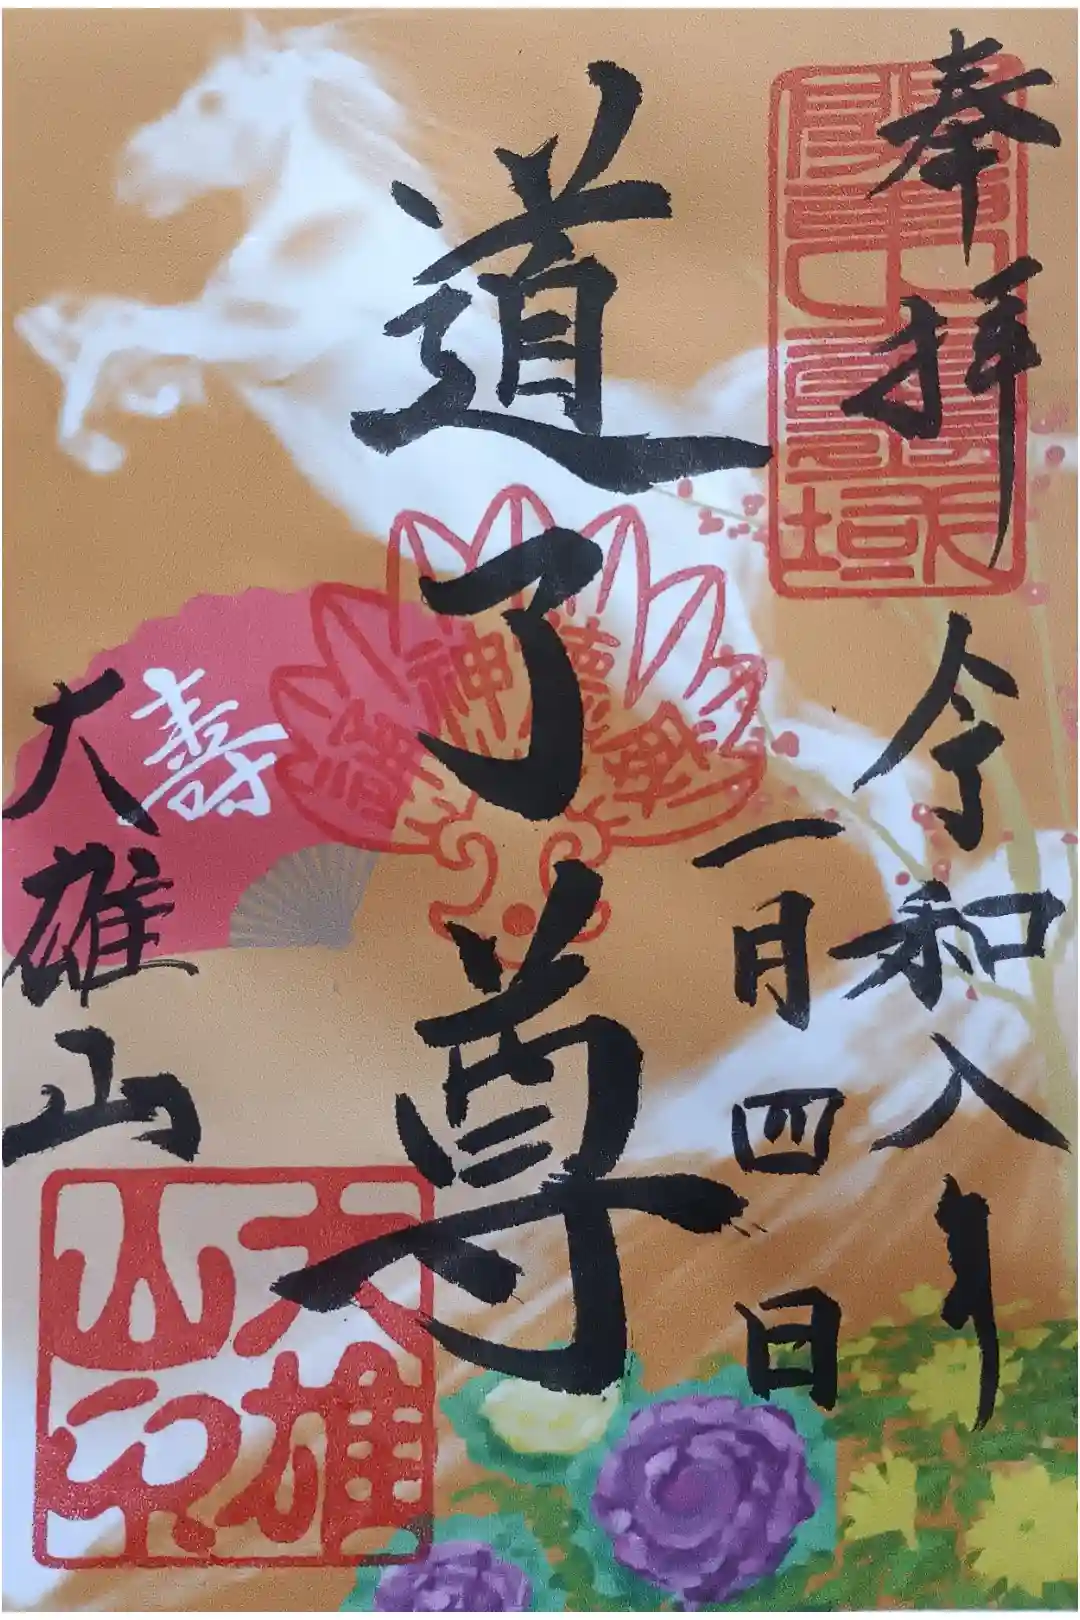 奉拝
令和八年
一月四日
道了尊
大雄山
壽
大雄山印